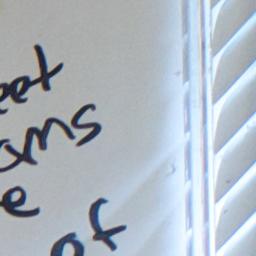 eet
ams
e
of